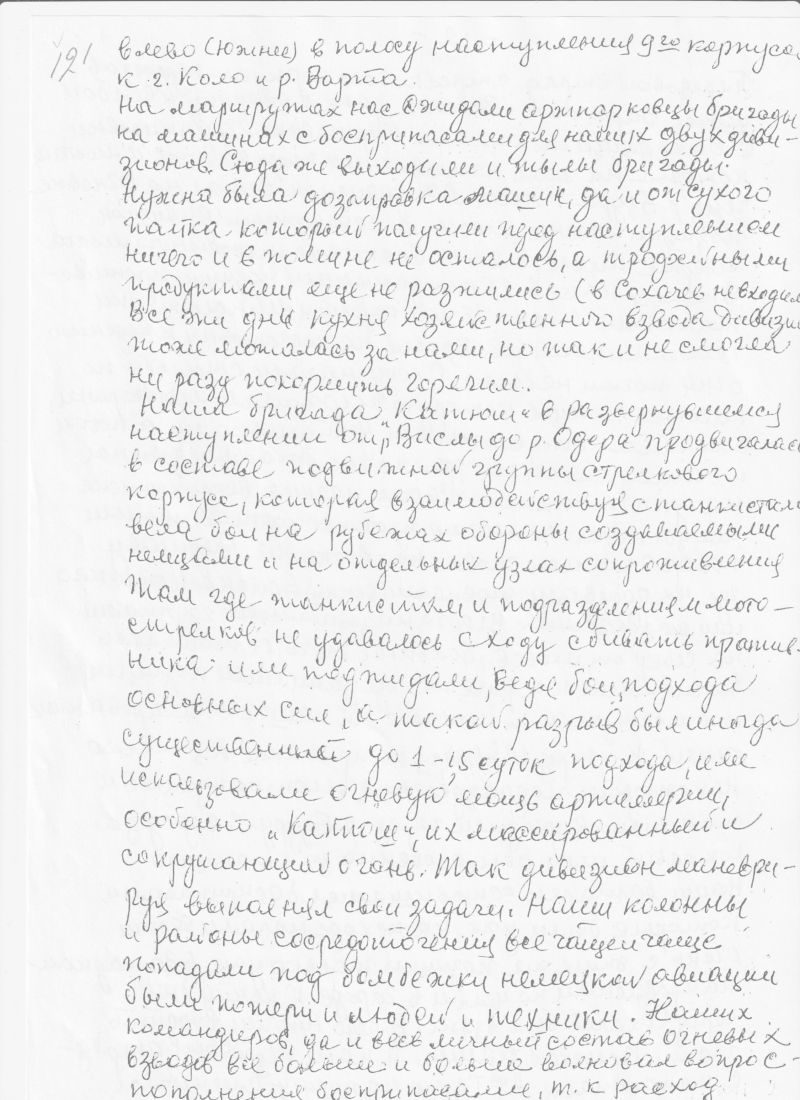 121
влево (южнее) в полосу наступления 9го корпуса
к г. Коло и р. Варта.
На маршрутах нас ожидали артпарковцы бригады
на машинах с боеприпасами для наших двух диви-
зионов. Сюда же выходили и тылы бригады.
Нужна была дозаправка машин, да и от сухого
пайка который получили перед наступлением
ничего и в помине не осталось, а трофейными
продуктами еще не разжились (в Сохачев не входили
Все эти дни кухня хозяйственного взвода дивизи
тоже моталась за нами, но так и не смогла
ни разу покормить горячим.
Наша бригада "Катюш" в развернувшемся
наступлении от р. Вислы до р. Одера продвигалась
в составе подвижной группы стрелкового
корпуса, которая взаимодействуя с танкистами
вела бои на рубежах обороны создаваемыми
немцами и на отдельных узлах сопротивления
Там где танкистам и подразделениям мото-
стрелков не удавалось сходу сбивать против-
ника или поджидали, ведя бои, подхода
основных сил, а такой разрыв был иногда
существенный до 1-1,5 суток подхода, или
использовали огневую мощь артиллерии,
особенно "Катюш", их массированный и
сокрушающий огонь. Так дивизион маневри-
руя выполнял свои задачи. Наши колонны
и районы сосредоточения все чаще и чаще
попадали под бомбежки немецкой авиации
были потери и людей и техники. Наших
командиров, да и весь личный состав огневых
взводов все больше и больше волновал вопрос
пополнения боеприпасами, т.к расход